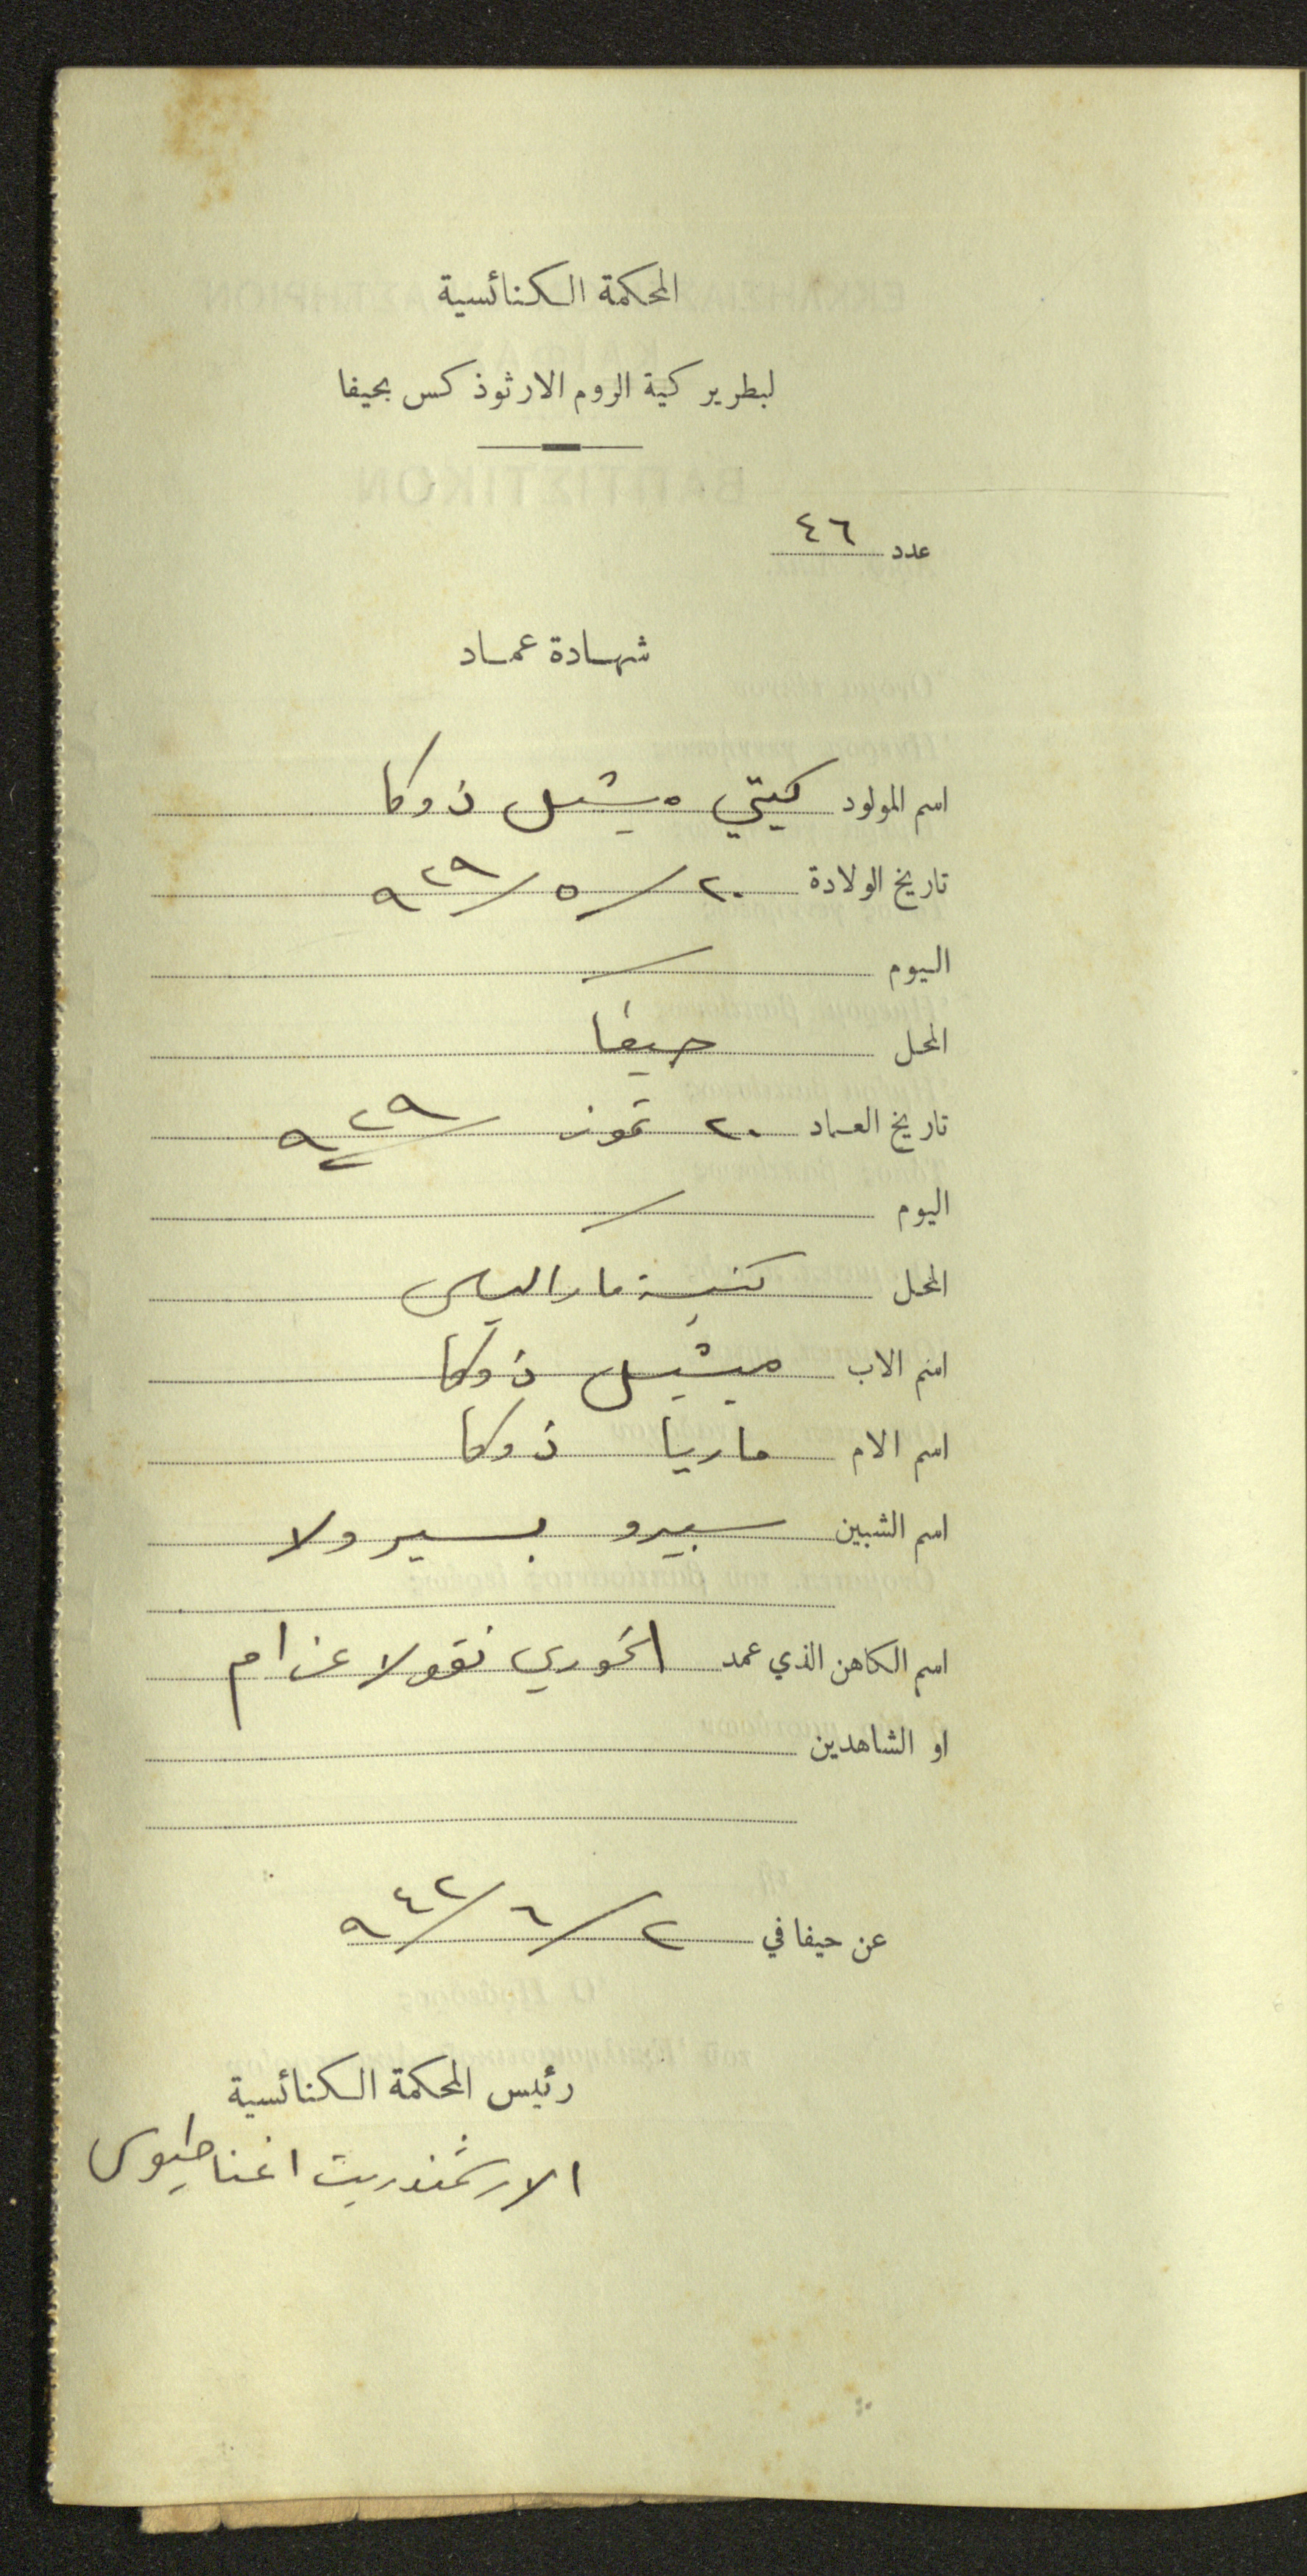 المحكمة الكنائسية
لبطريركية الروم الارثوذكس بحيفا
عدد ٤٦
شهادة عماد
اسم المولود كيتي ميشيل ذوكا
تاريخ الولادة ٢٠/٥/٩٢٩
اليوم /
المحل حيفا
تاريخ العماد ٢٠ تموز ٩٢٩
اليوم /
المحل كنيسة مار الياس
اسم الاب ميشيل ذوكا
اسم الام ماريا ذوكا
اسم الشبين سبيرو بسيرولا
اسم الكاهن الذي عمد الخوري نقولا عزام
او الشاهدين
عن حيفا في ٢/٦/٩٤٢
رئيس المحكمة الكنائسية
الارشمندريت اغناطيوس